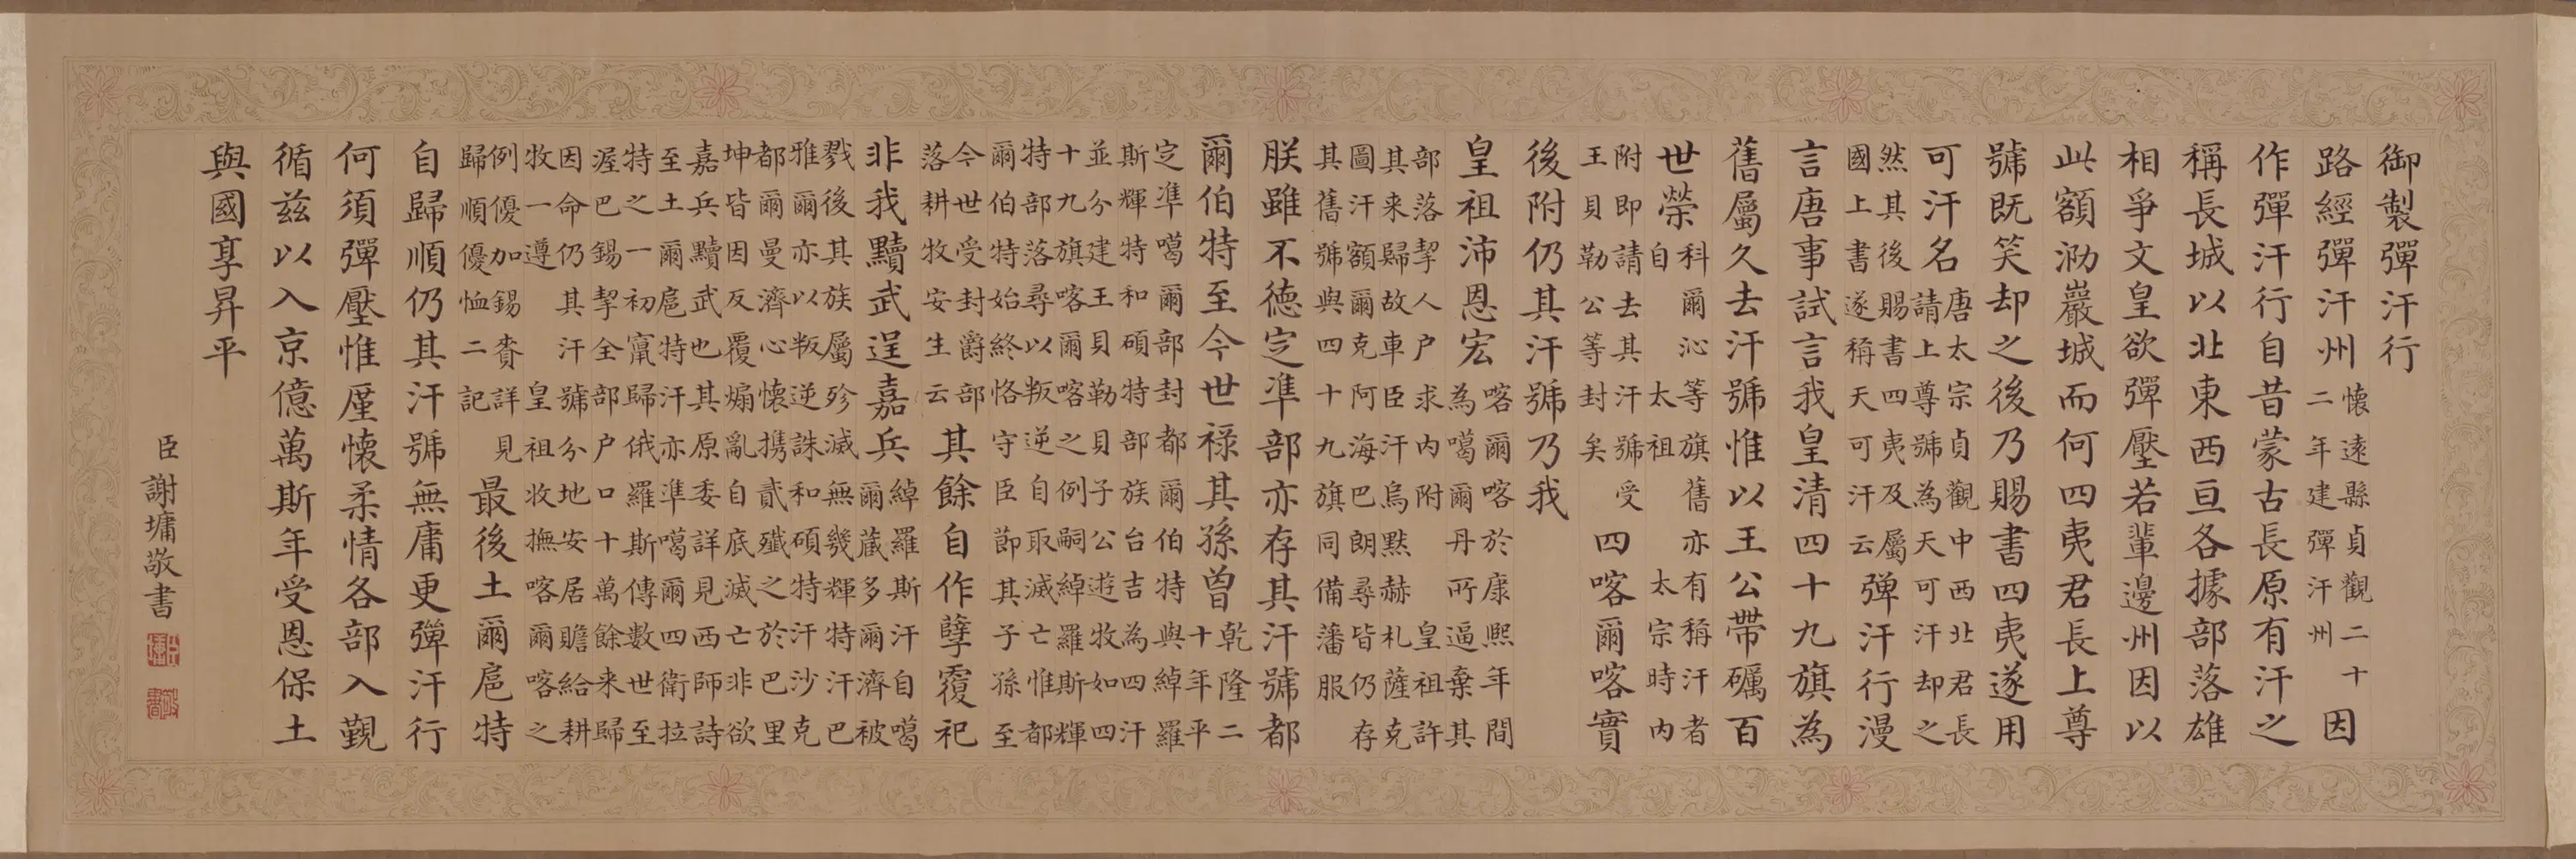 御製彈汗行
路經彈汗州
懷遠縣貞觀二十
二年建彈汗州
因
作彈汗行自昔蒙古長原有汗之
稱長城以北東西亘各據部落雄
相爭文皇欲彈壓若輩邊州因以
此額泐巖城而何四夷君長上尊
號既笑却之後乃賜書四夷遂用
可汗名
唐太宗貞觀中西北君長
請上尊號為天可汗却之
然其後賜書四夷及屬
國上書遂稱天可汗云
彈汗行漫
言唐事試言我皇清四十九旗為
舊屬久去汗號惟以王公帶礪百
世榮
科爾沁等旗舊亦有稱汗者
自太祖太宗時內
附即請去其汗號受
王貝勒公等封矣
四喀爾喀實
後附仍其汗號乃我
皇祖沛恩宏
喀爾喀於康熙年間
為噶爾丹所逼棄其
部落挈人户求內附皇祖許
其来歸故車臣汗烏默赫札薩克
圖汗額爾克阿海巴朗尋皆仍存
其舊號與四十九旗同備藩服
朕雖不德定準部亦存其汗號都
爾伯特至今世祿其孫曾
乾隆二
十年平
定準噶爾部封都爾伯特與綽羅
斯輝特和碩特部族台吉為四汗
並分建王貝勒貝子公遊牧如四
十九旗喀爾喀之例嗣綽羅斯輝
特部落尋以叛逆自取滅亡惟都
爾伯特始終恪守臣節其子孫至
今世受封爵部
落耕牧安生云
其餘自作孽覆祀
非我黷武逞嘉兵
綽羅斯汗自噶
爾藏多爾濟被
戮後其族屬殄滅無幾輝特汗巴
雅爾亦以叛逆誅和碩特汗沙克
都爾曼濟心懷携貳殲之於巴里
坤皆因反覆煽亂自底滅亡非欲
嘉兵黷武也其原委詳見西師詩
至土爾扈特汗亦準噶爾四衛拉
特之一初竄歸俄羅斯傳數世至
渥巴錫挈全部户口十萬餘来歸
因命仍其汗號分地安居贍給耕
牧一遵皇祖收撫喀爾喀之
例優加錫賚詳見
歸順優恤二記
最後土爾扈特
自歸順仍其汗號無庸更彈汗行
何須彈壓惟廑懷柔情各部入覲
循兹以入京億萬斯年受恩保土
與國享昇平
臣謝墉敬書
臣墉
敬書